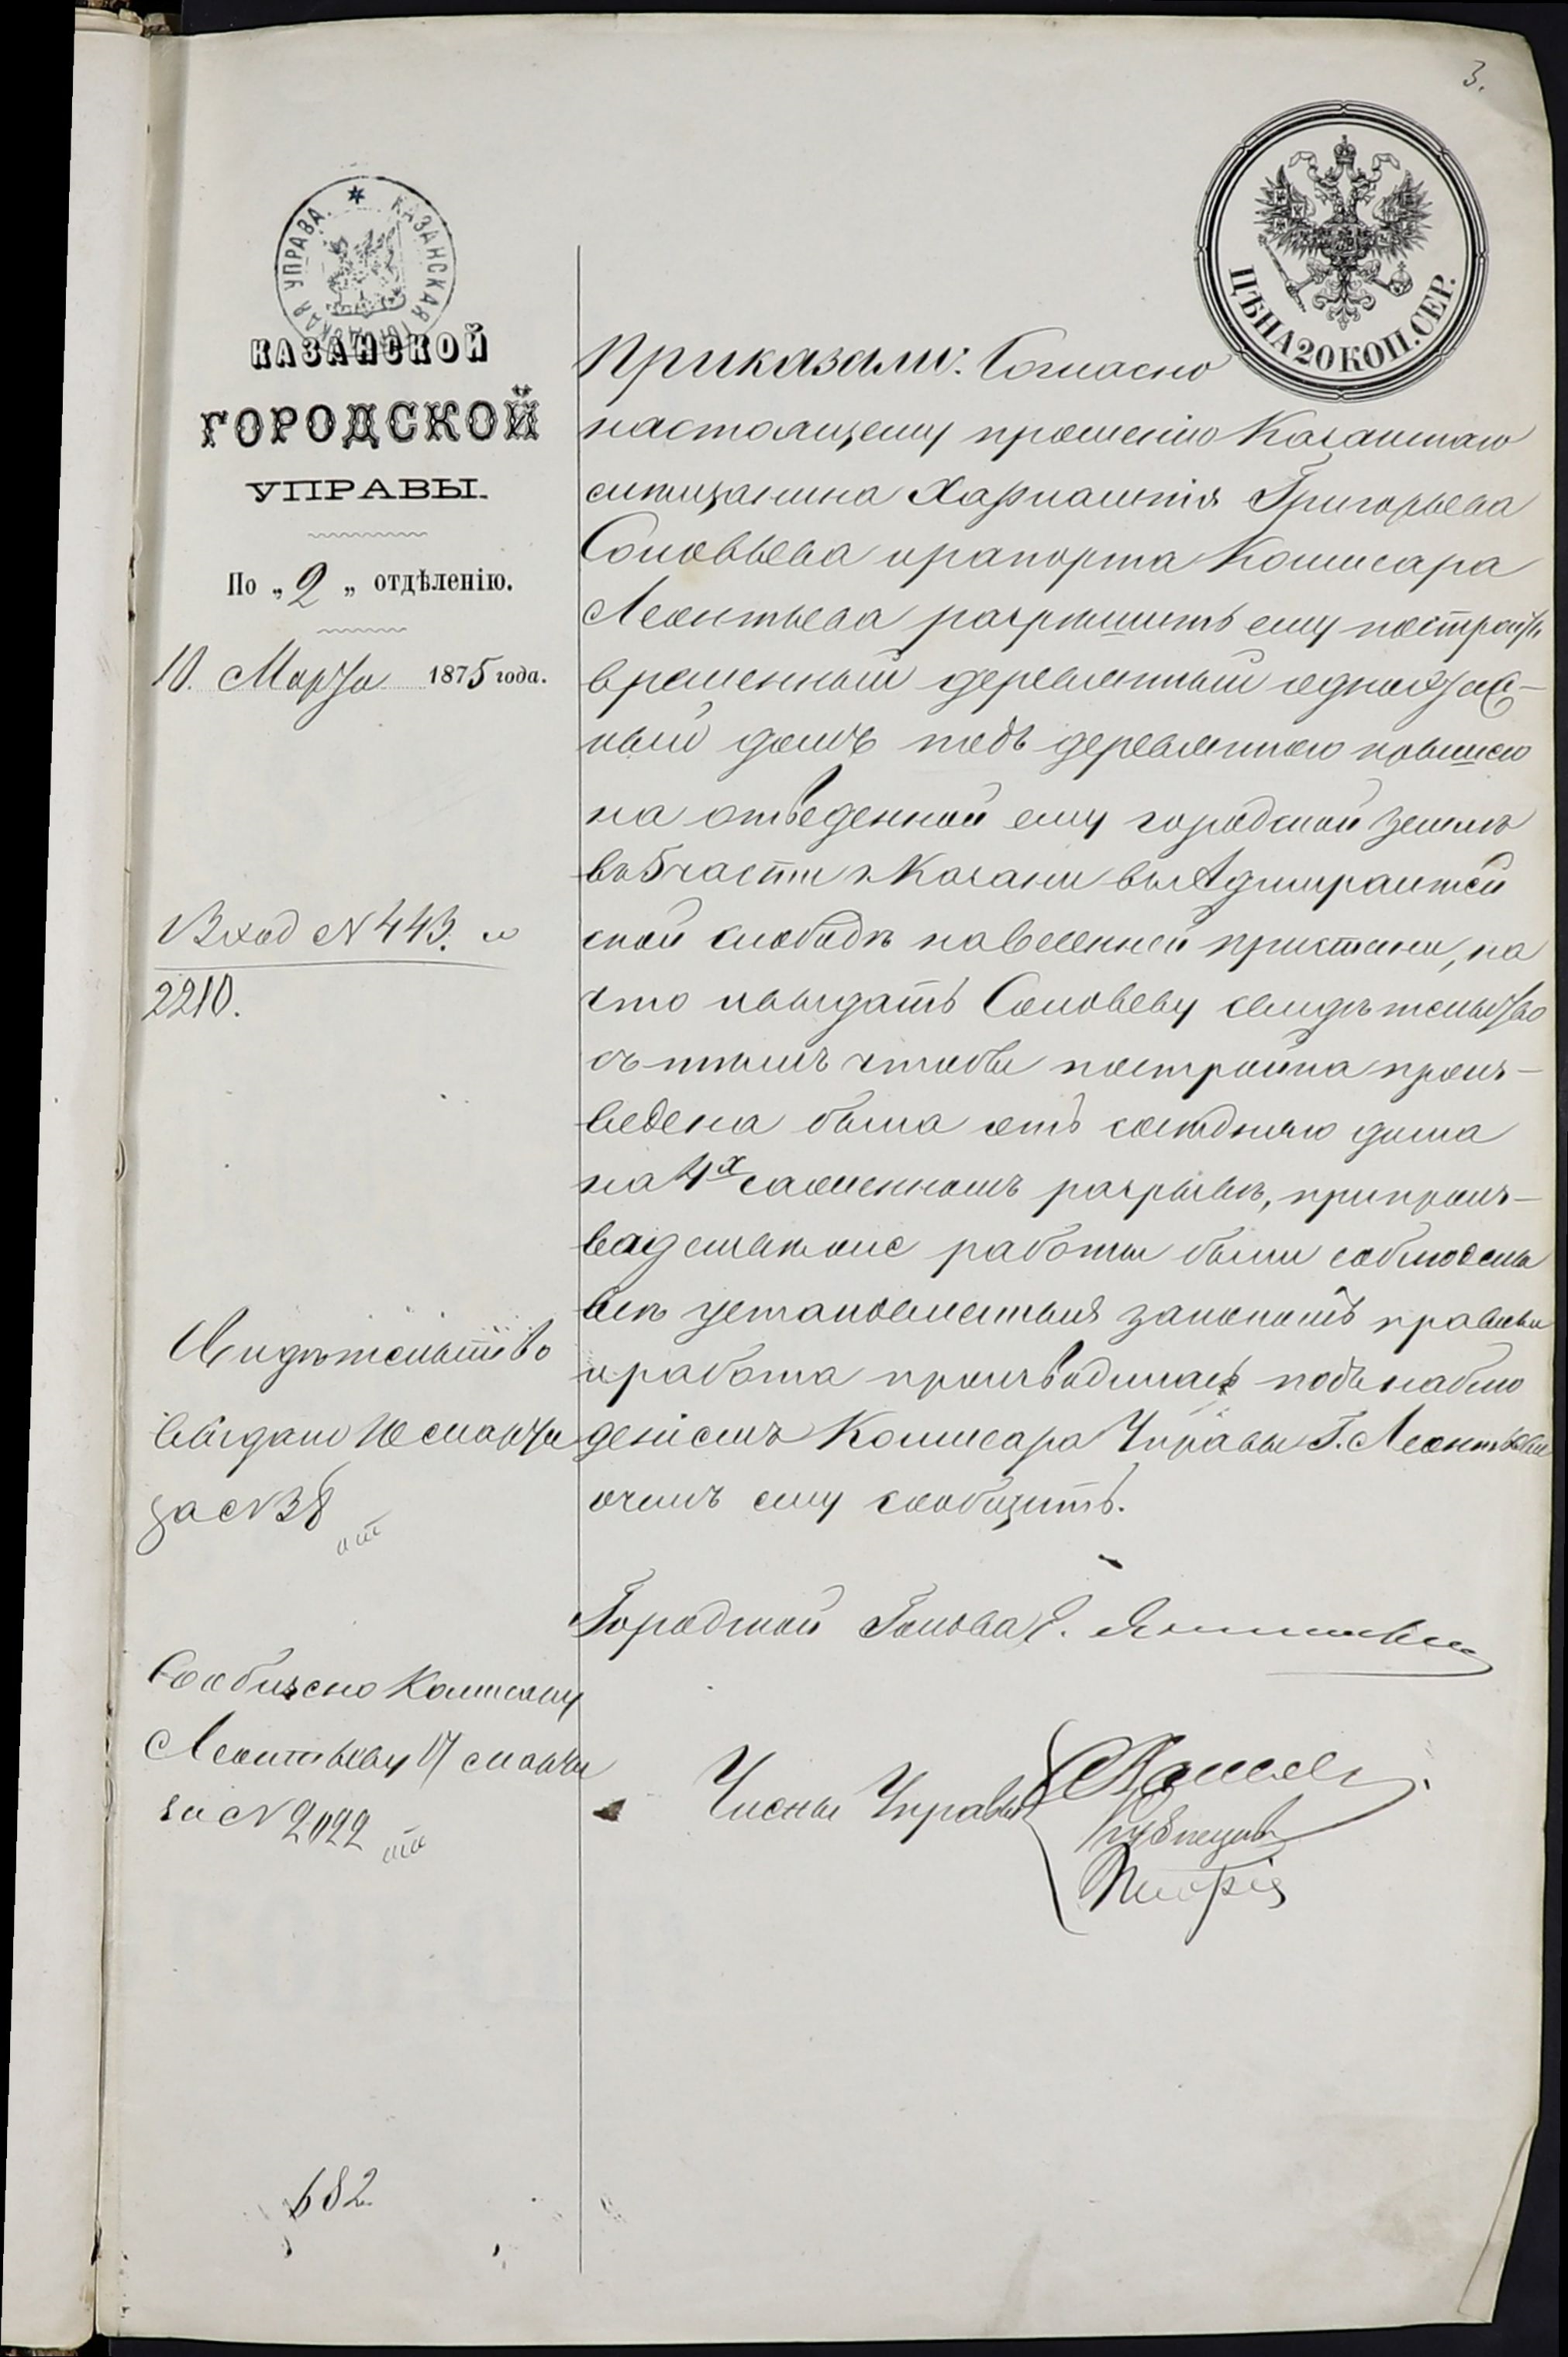 3.
КАЗАНСКАЯ ГОРОДСКАЯ УПРАВА.
ЦѢНА 20 КОП. СЕР.
КАЗАНСКОЙ
ГОРОДСКОЙ
УПРАВЫ.
По „2„ отдѣленію.
10. Марта 1875 года.
Вход №443. и
2210.
Свидѣтельство
выдано 10 марта
за №38
Сообщено Комисару
Леонтьеву 17 марта
за №2022
682
Приказали: Согласно
настоящему прошенію Казанскаго
мѣщанина Харлампія Григорьева
Соловьева и рапорта Комисара
Леонтьева разрѣшить ему построить
временный деревянный одноэтаж-
ный домъ подъ деревянною крышею
на отведенной ему городской землѣ
въ 5 части г. Казани въ Адмиралтей
ской слободѣ на весенней пристани, на
что и выдать Соловьеву свидѣтельство
съ тѣмъ чтобы постройка произ-
ведена была отъ сосѣдняго дома
на 4х саженномъ разрывѣ, при произ-
водствѣ работы были соблюдены
всѣ установленныя закономъ правилы
и работа производилась подъ наблю
деніемъ Комисара Управы Г. Леонтьева
о чемъ ему сообщить.
Городской Голова Е.
Члены Управы